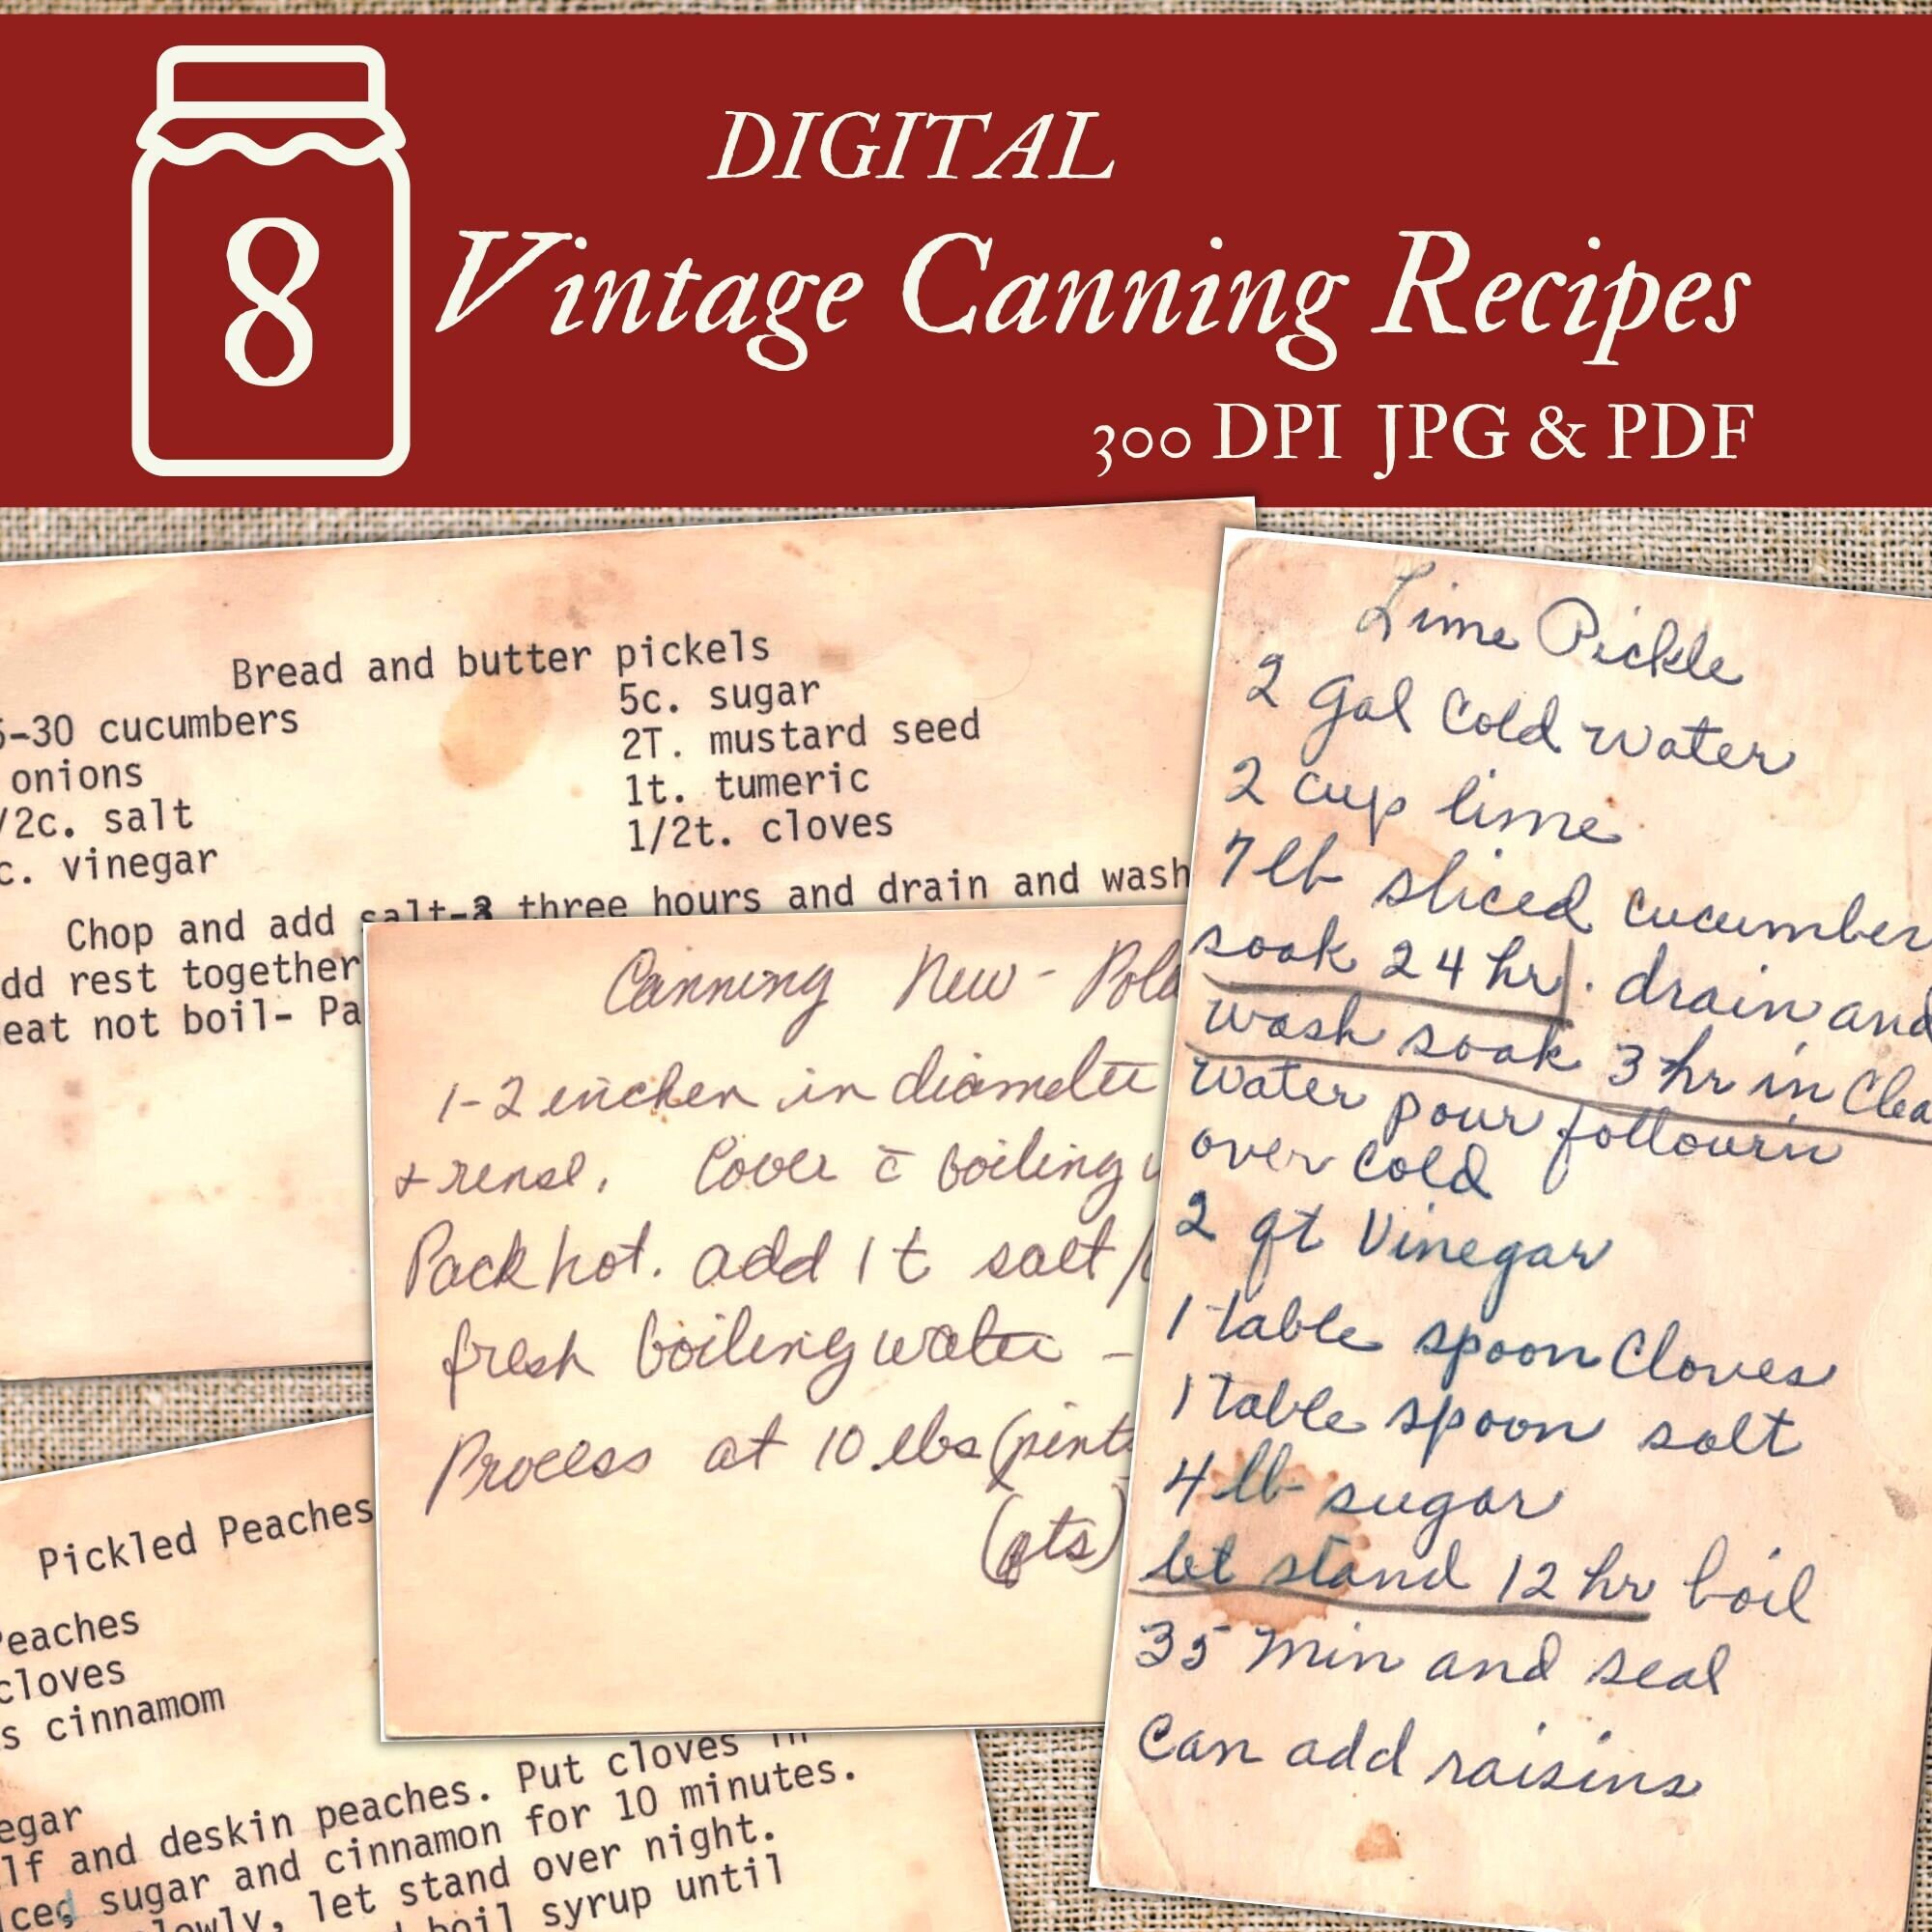 DIGITAL
8
Vintage Canning Recipes
300 DPI JPG & PDF
Bread and butter pickels
-30 cucumbers
onions
/2c. salt
c. vinegar
5c. sugar
2T. mustard seed
1t. tumeric
1/2t. cloves
Chop and add salt-3 three hours and drain and wash
dd rest together
eat not boil- Pa
Canning New-
1-2 inches in diameter
+ rense. Cover c̄ boiling
Pack hot. add 1 t salt/
fresh boiling water -
Process at 10 lbs (pints
(qts)
Lime Pickle
2 gal Cold water
2 cup lime
7 lb sliced cucumber
soak 24 hr. drain and
wash soak 3 hr in Clea
water pour followin
over cold
2 qt Vinegar
1 table spoon Cloves
1 table spoon salt
4 lb sugar
let stand 12 hr boil
35 min and seal
can add raisins
Pickled Peaches
Peaches
cloves
s cinnamom
egar
lf and deskin peaches. Put cloves in
iced sugar and cinnamon for 10 minutes.
lowly, let stand over night.
boil syrup until